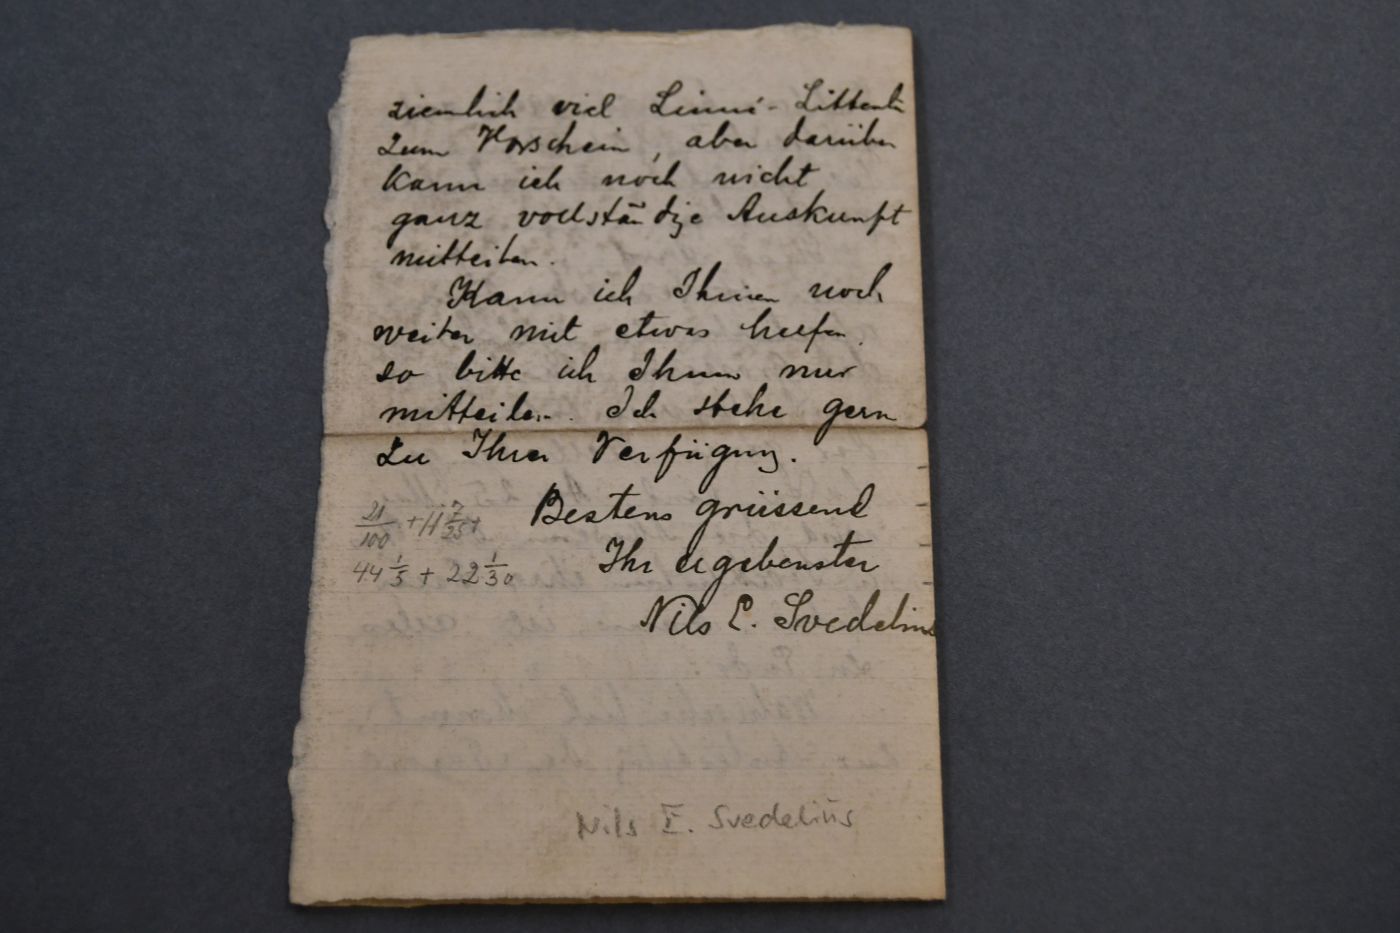 ziemlich viel Linné-Litteratur
zum Vorschein, aber darüber
kann ich noch nicht
ganz vollständige Auskunft
mitteilen.
Kann ich Ihnen noch
weiter mit etwas helfen,
so bitte ich Ihnen nur
mitteilen. Ich stehe gern
zu Ihrer Verfügung.
Bestens grüssend
Ihr ergebenster
Nils E. Svedelius
21/100 + 11 7/25 +
44 1/5 + 22 1/30
Nils E. Svedelius